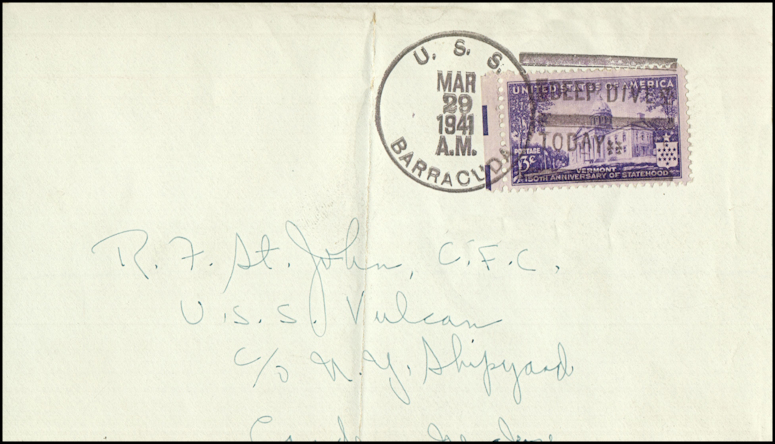 U. S. S.
MAR
29
1941
A.M.
BARRACUDA
DEEP DIVE
TODAY
UNITED STATES OF AMERICA
POSTAGE
3¢
VERMONT
150TH ANNIVERSARY OF STATEHOOD
R. F. St. John, C.F.C.
U.S.S. Vulcan
c/o N.Y. Shipyard